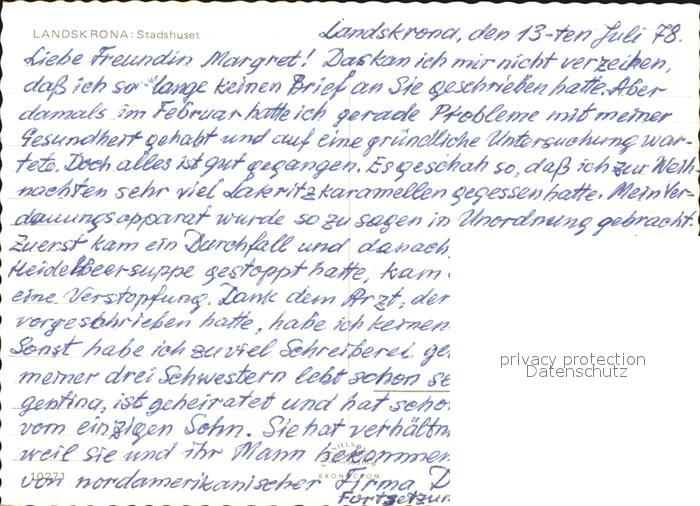 LANDSKRONA: Stadshuset
Landskrona, den 13-ten Juli 78.
Liebe Freundin Margret! Das kan ich mir nicht verzeihen,
daß ich so lange keinen Brief an Sie geschrieben hatte. Aber
damals im Februar hatte ich gerade Probleme mit meiner
Gesundheit gehabt und auf eine gründliche Untersuchung war-
tete. Doch alles ist gut gegangen. Es geschah so, daß ich zur Weih-
nachten sehr viel Lakritzkaramellen gegessen hatte. Mein Ver-
dauungsapparat wurde so zu sagen in Unordnung gebracht.
Zuerst kam ein Durchfall und danach
Heidelbeersuppe gestoppt hatte, kam
eine Verstopfung. Dank dem Arzt, der
vorgeschrieben hatte, habe ich keinen
Sonst habe ich zuviel Schreiberei ge
meiner drei Schwestern lebt schon se
gentina, ist geheiratet und hat scho
vom einzigen Sohn. Sie hat verhältn
weil sie und ihr Mann bekommen
von nordamerikanischer Firma D
Fortsetzun
10271
privacy protection
Datenschutz